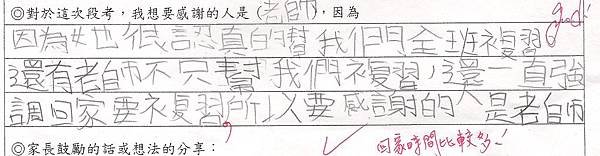 ◎對於這次段考，我想要感謝的人是（老師），因為 good!
因為她很認真的幫我們全班複習。
還有老師不只幫我們複習，還一直強
調回家要複習，所以要感謝的人是老師
回家時間比較多！
◎家長鼓勵的話或想法的分享：